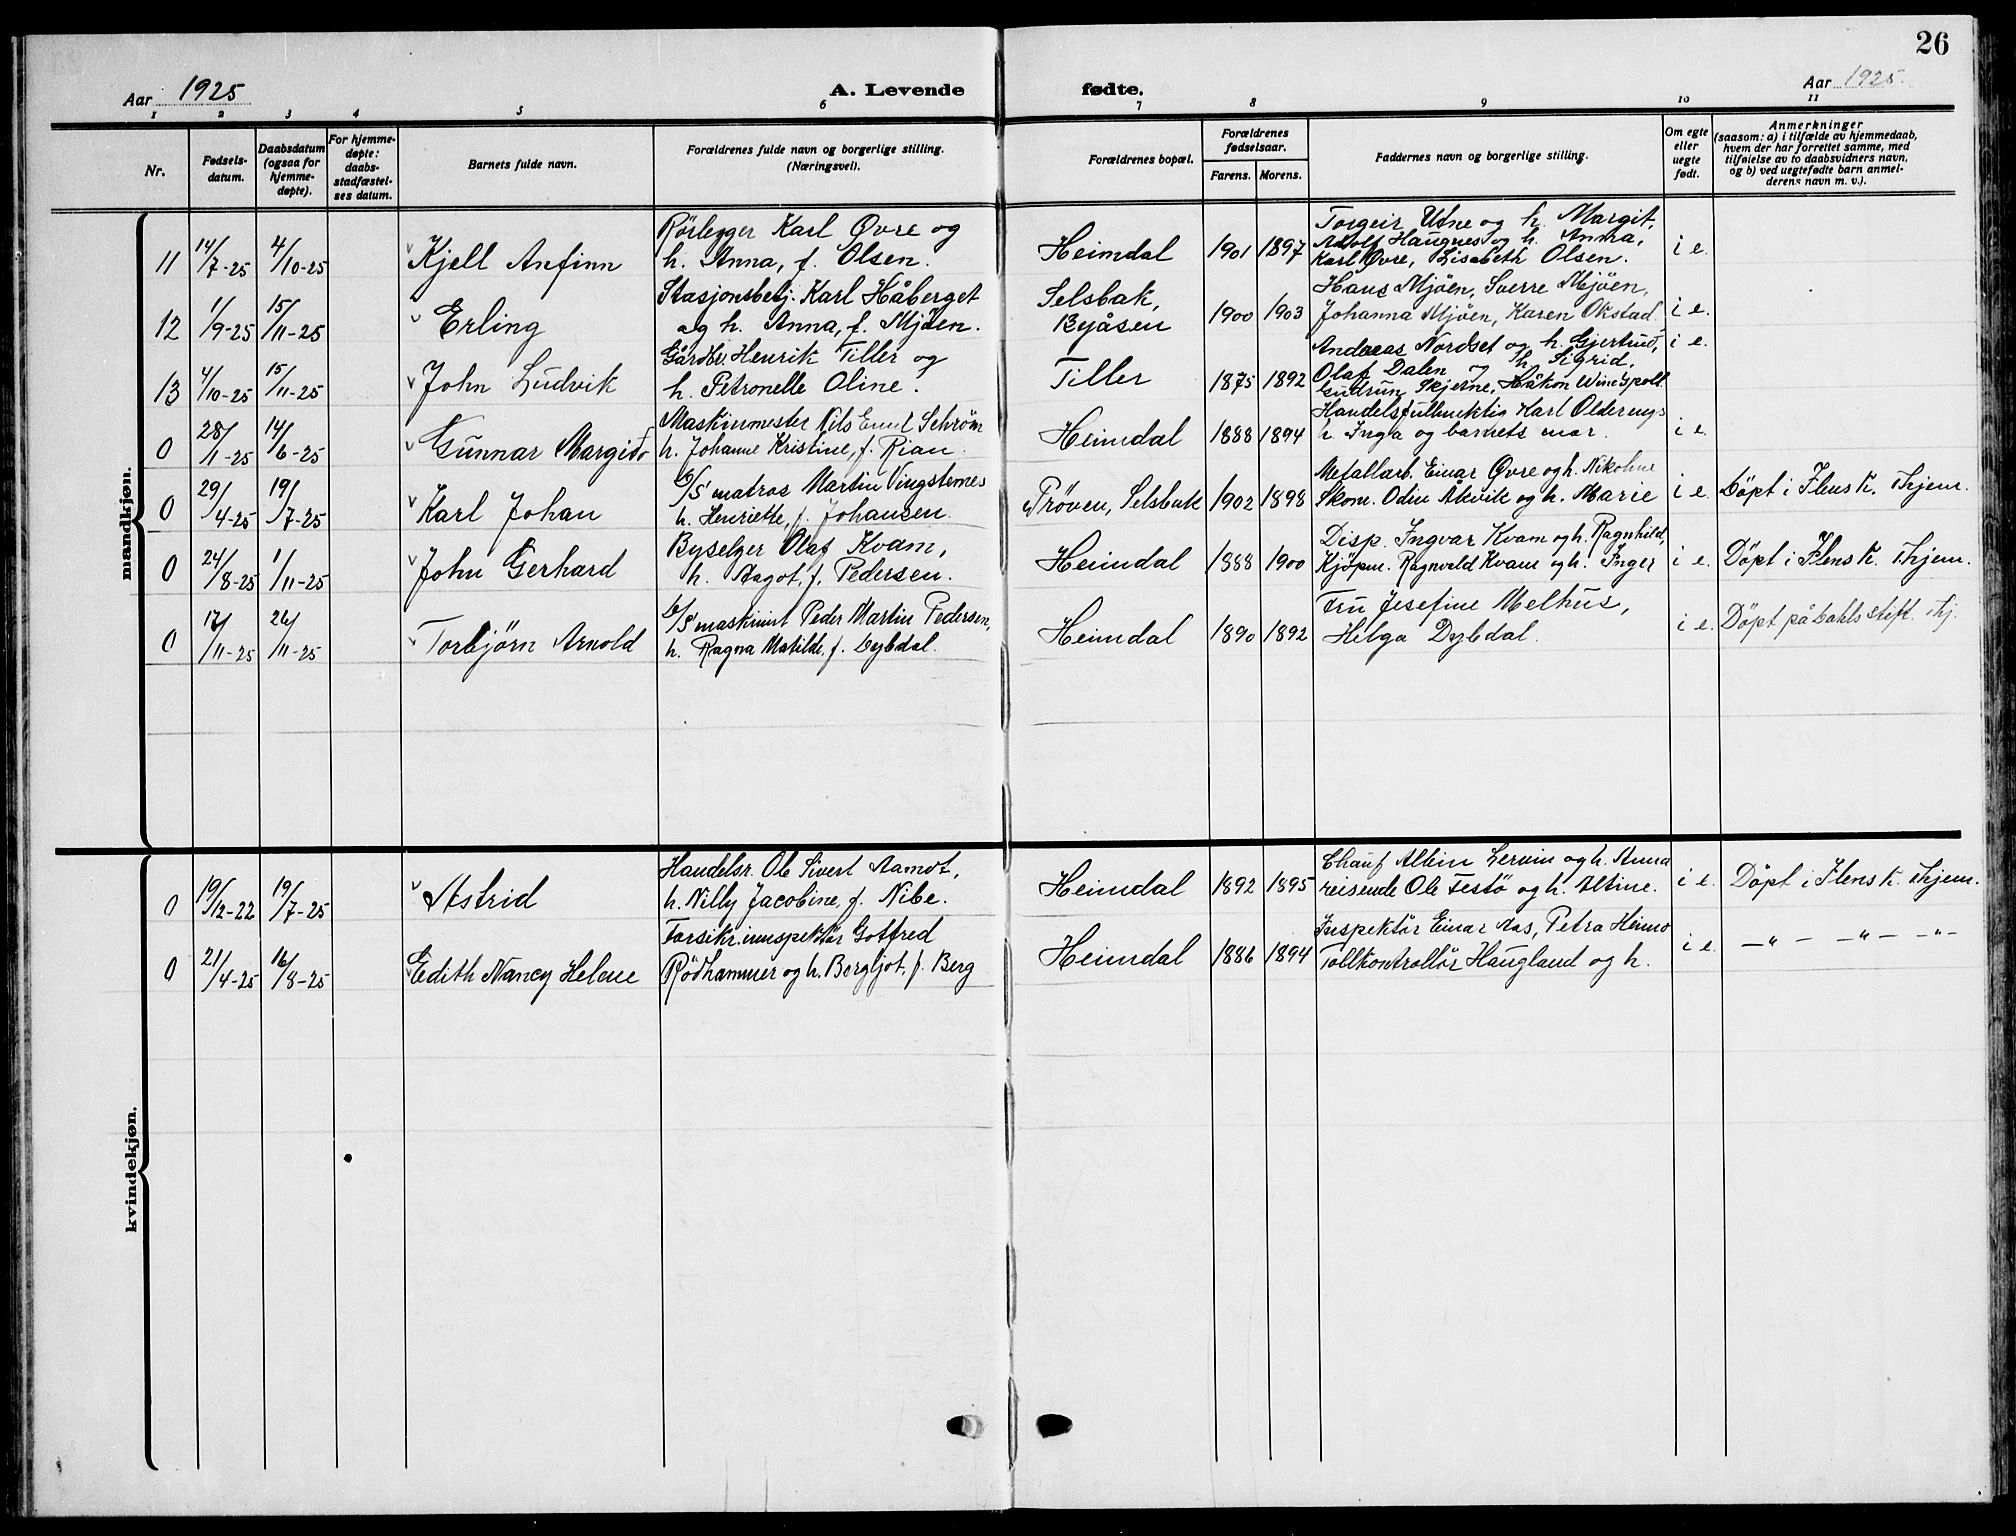 26
Aar 1925
A. Levende fødte.
Aar 1925.
1 2 3 4 5 6 7 8 9 10 11
Nr.
Fødsels-
datum.
Daabsdatum
(ogsaa for
hjemme-
døpte).
For hjemme-
døpte:
daabs-
stadfæstel-
ses datum.
Barnets fulde navn.
Forældrenes fulde navn og borgerlige stilling.
(Næringsvei).
Forældrenes bopæl.
Forældrenes
fødselsaar.
Farens. Morens.
Faddernes navn og borgerlige stilling.
Om egte
eller
uegte
født.
Anmerkninger
(saasom: a) i tilfælde av hjemmedaab,
hvem der har forrettet samme, med
tilføielse av to daabsvidners navn,
og b) ved uegtefødte barn anmel-
derens navn m. v.).
mandkjøn.
11 14/7-25 4/10-25 Kjell Anfinn
Rörlegger Karl Øvre og
h. Anna, f. Olsen.
Heimdal 1901 1897
Torgeir Utne og h. Margit,
Adolf Haugnes og h. Anna,
Karl Øvre, Lisabeth Olsen.
i e.
12 1/9-25 15/11-25 Erling
Stasjonsbetj. Karl Håberget
og h. Anna, f. Mjöen.
Selsbak,
Byåsen
1900 1903
Hans Mjöen, Sverre Mjöen,
Johanna Mjöen, Karen Okstad.
i e.
13 4/10-25 15/11-25 John Ludvik
Gårdbr. Henrik Tiller og
h. Petronelle Oline.
Tiller 1875 1892
Andreas Nordset og h. Gjertrud,
Olaf Dalen og h. Sigrid,
Gudrun Skjerve, Håkon
i e.
0 28/1-25 14/6-25 Gunnar Margido
Maskinmester Nils Emil Schröm
h. Johanne Kristine, f. Rian.
Heimdal 1888 1894
Handelsfullmektig Karl
h. Inga og barnets mor.
i e.
0 29/4-25 19/7-25 Karl Johan
b/S matros Martin Vingsternes
h. Henriette, f. Johansen.
Prøven, Selsbak 1902 1898
Metallarb. Einar Øvre og h. Nikoline
Skom. Odin Åkvik og h. Marie
i e. Döpt i Ilens K. Thjem.
0 24/8-25 1/11-25 John Gerhard
Byselger Olaf Kvam,
h. Aagot, f. Pedersen.
Heimdal 1888 1900
Disp. Ingvar Kvam og h. Ragnhild,
Kjöpm. Ragnvald Kvam og h. Inger
i e. Döpt i Ilens K. Thjem.
0 17/11-25 26/11-25 Torbjörn Arnold
b/S maskinist Peder Martin Pedersen,
h. Ragna Matilde, f. Dybdal.
Heimdal 1890 1892
Fru Jesefine Melhus,
Helga Dybdal.
i e. Döpt på Dahls stift. Thj.
kvindekjøn.
0 19/12-22 19/7-25 Astrid
Handelsr. Ole Sivert Aamot,
h. Nilly Jacobine, f. Nibe.
Heimdal 1892 1895
Chauf Albin Lervin og h. Anna
reisende Ole Festö og h. Altine.
i e. Döpt i Ilens K. Thjem.
0 21/4-25 16/8-25 Edith Nancy Helene
Forsikr. innspektör Gotfred
Rödhammer og h. Bergljot, f. Berg
Heimdal 1886 1894
Inspektör Einar Aas, Petra Heimo
Tollkontrollör Haugland og h.
i e. -"- -"- -"-